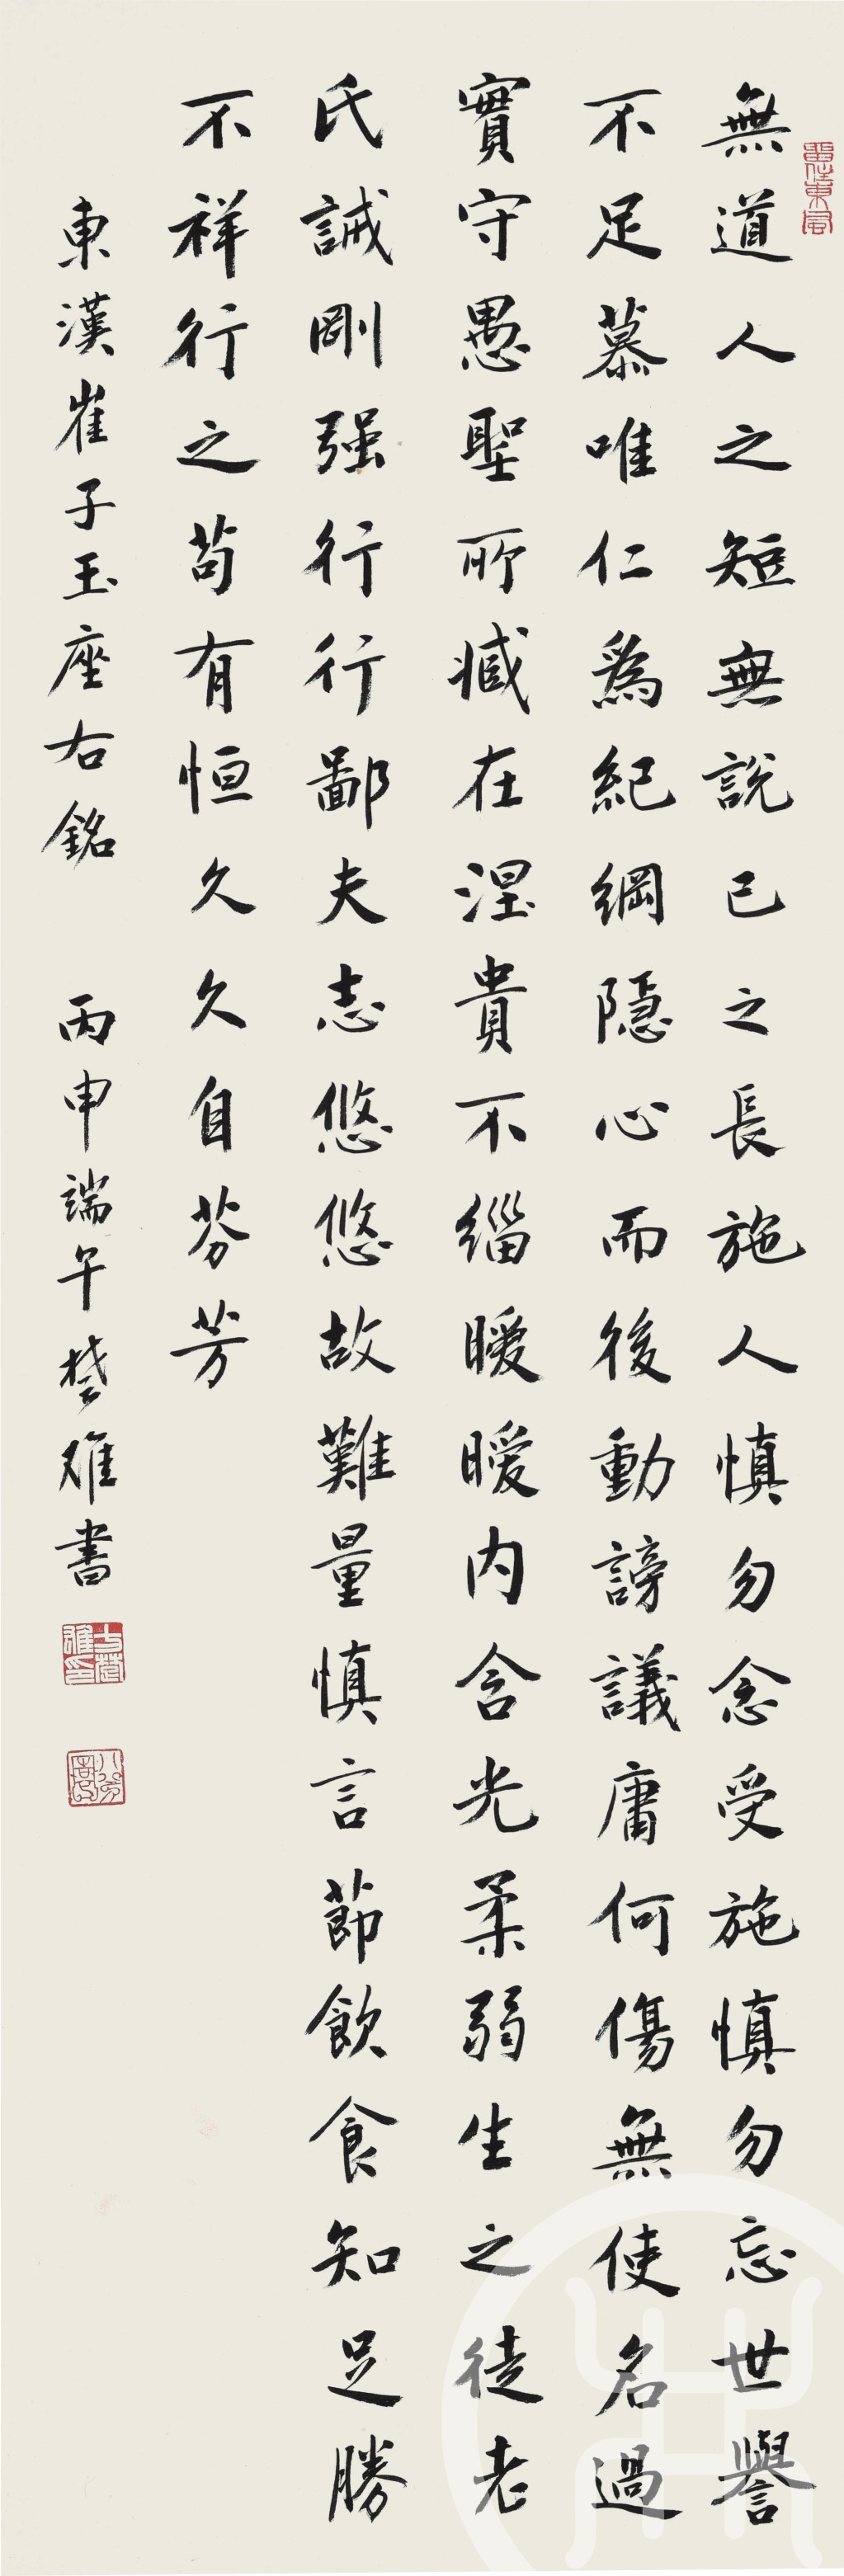 無道人之短無說己之長施人慎勿念受施慎勿忘世譽
不足慕唯仁為紀綱隱心而後動謗議庸何傷無使名過
實守愚聖所臧在涅貴不緇曖曖內含光柔弱生之徒老
氏誡剛强行行鄙夫志悠悠故難量慎言節飲食知足勝
不祥行之苟有恒久久自芬芳
東漢崔子玉座右銘 丙申端午楚雄書